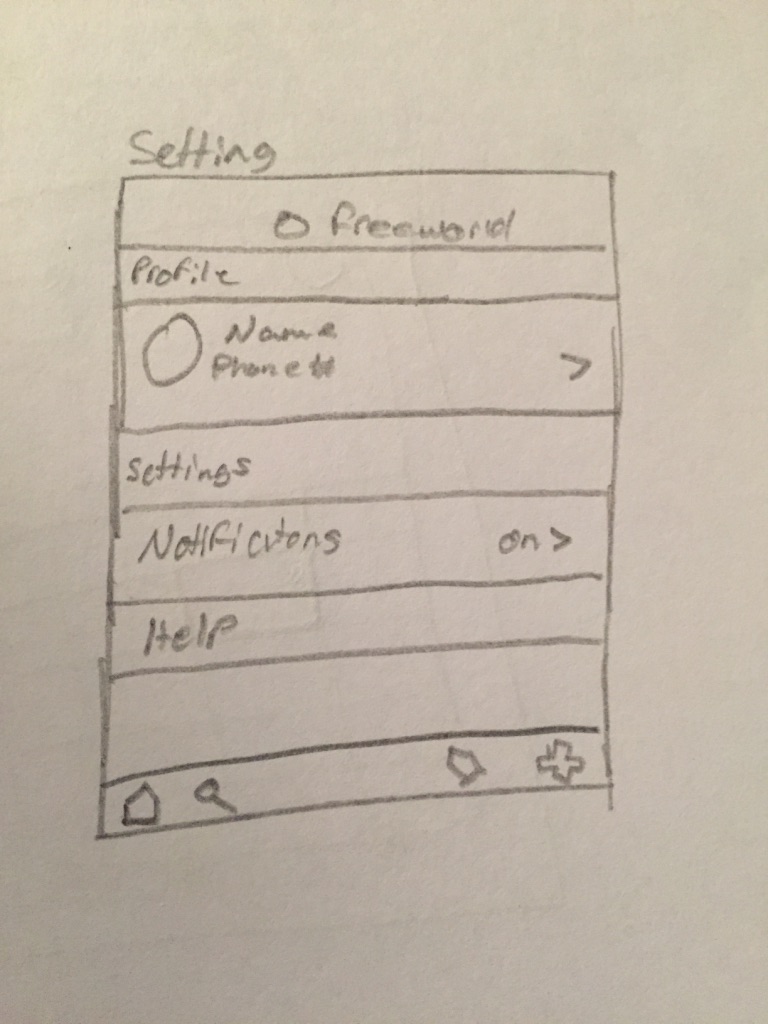 Setting
freeworld
Profile
Name
Phone#
>
settings
Notifictons on >
Help